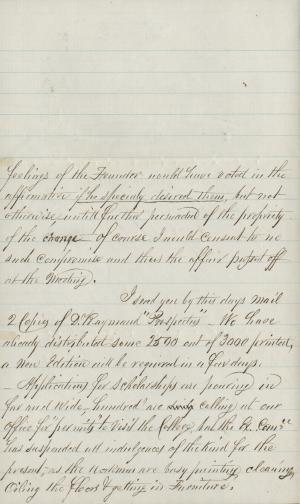 feelings of the Founder would have voted in the
affirmative if he specially desired them, but not
otherwise, until further persuaded of the propriety
of the change of course I would consent to no
such compromise and thus the affair put off
at the Meeting.
I send you by this days mail
2 Copies of Dr Raymond "Prospectus" - We have
already distributed some 2500 out of 3000 printed,
a new Edition will be required in a few days.
- Applications for Scholarships are pouring in
far and Wide - hundreds are calling at our
Office for permits to Visit the College, but the Ex. Comee
has suspended all indulgences of the Kind for the
present, as the workmen are busy painting cleaning,
Oiling the floors & getting in Furniture.